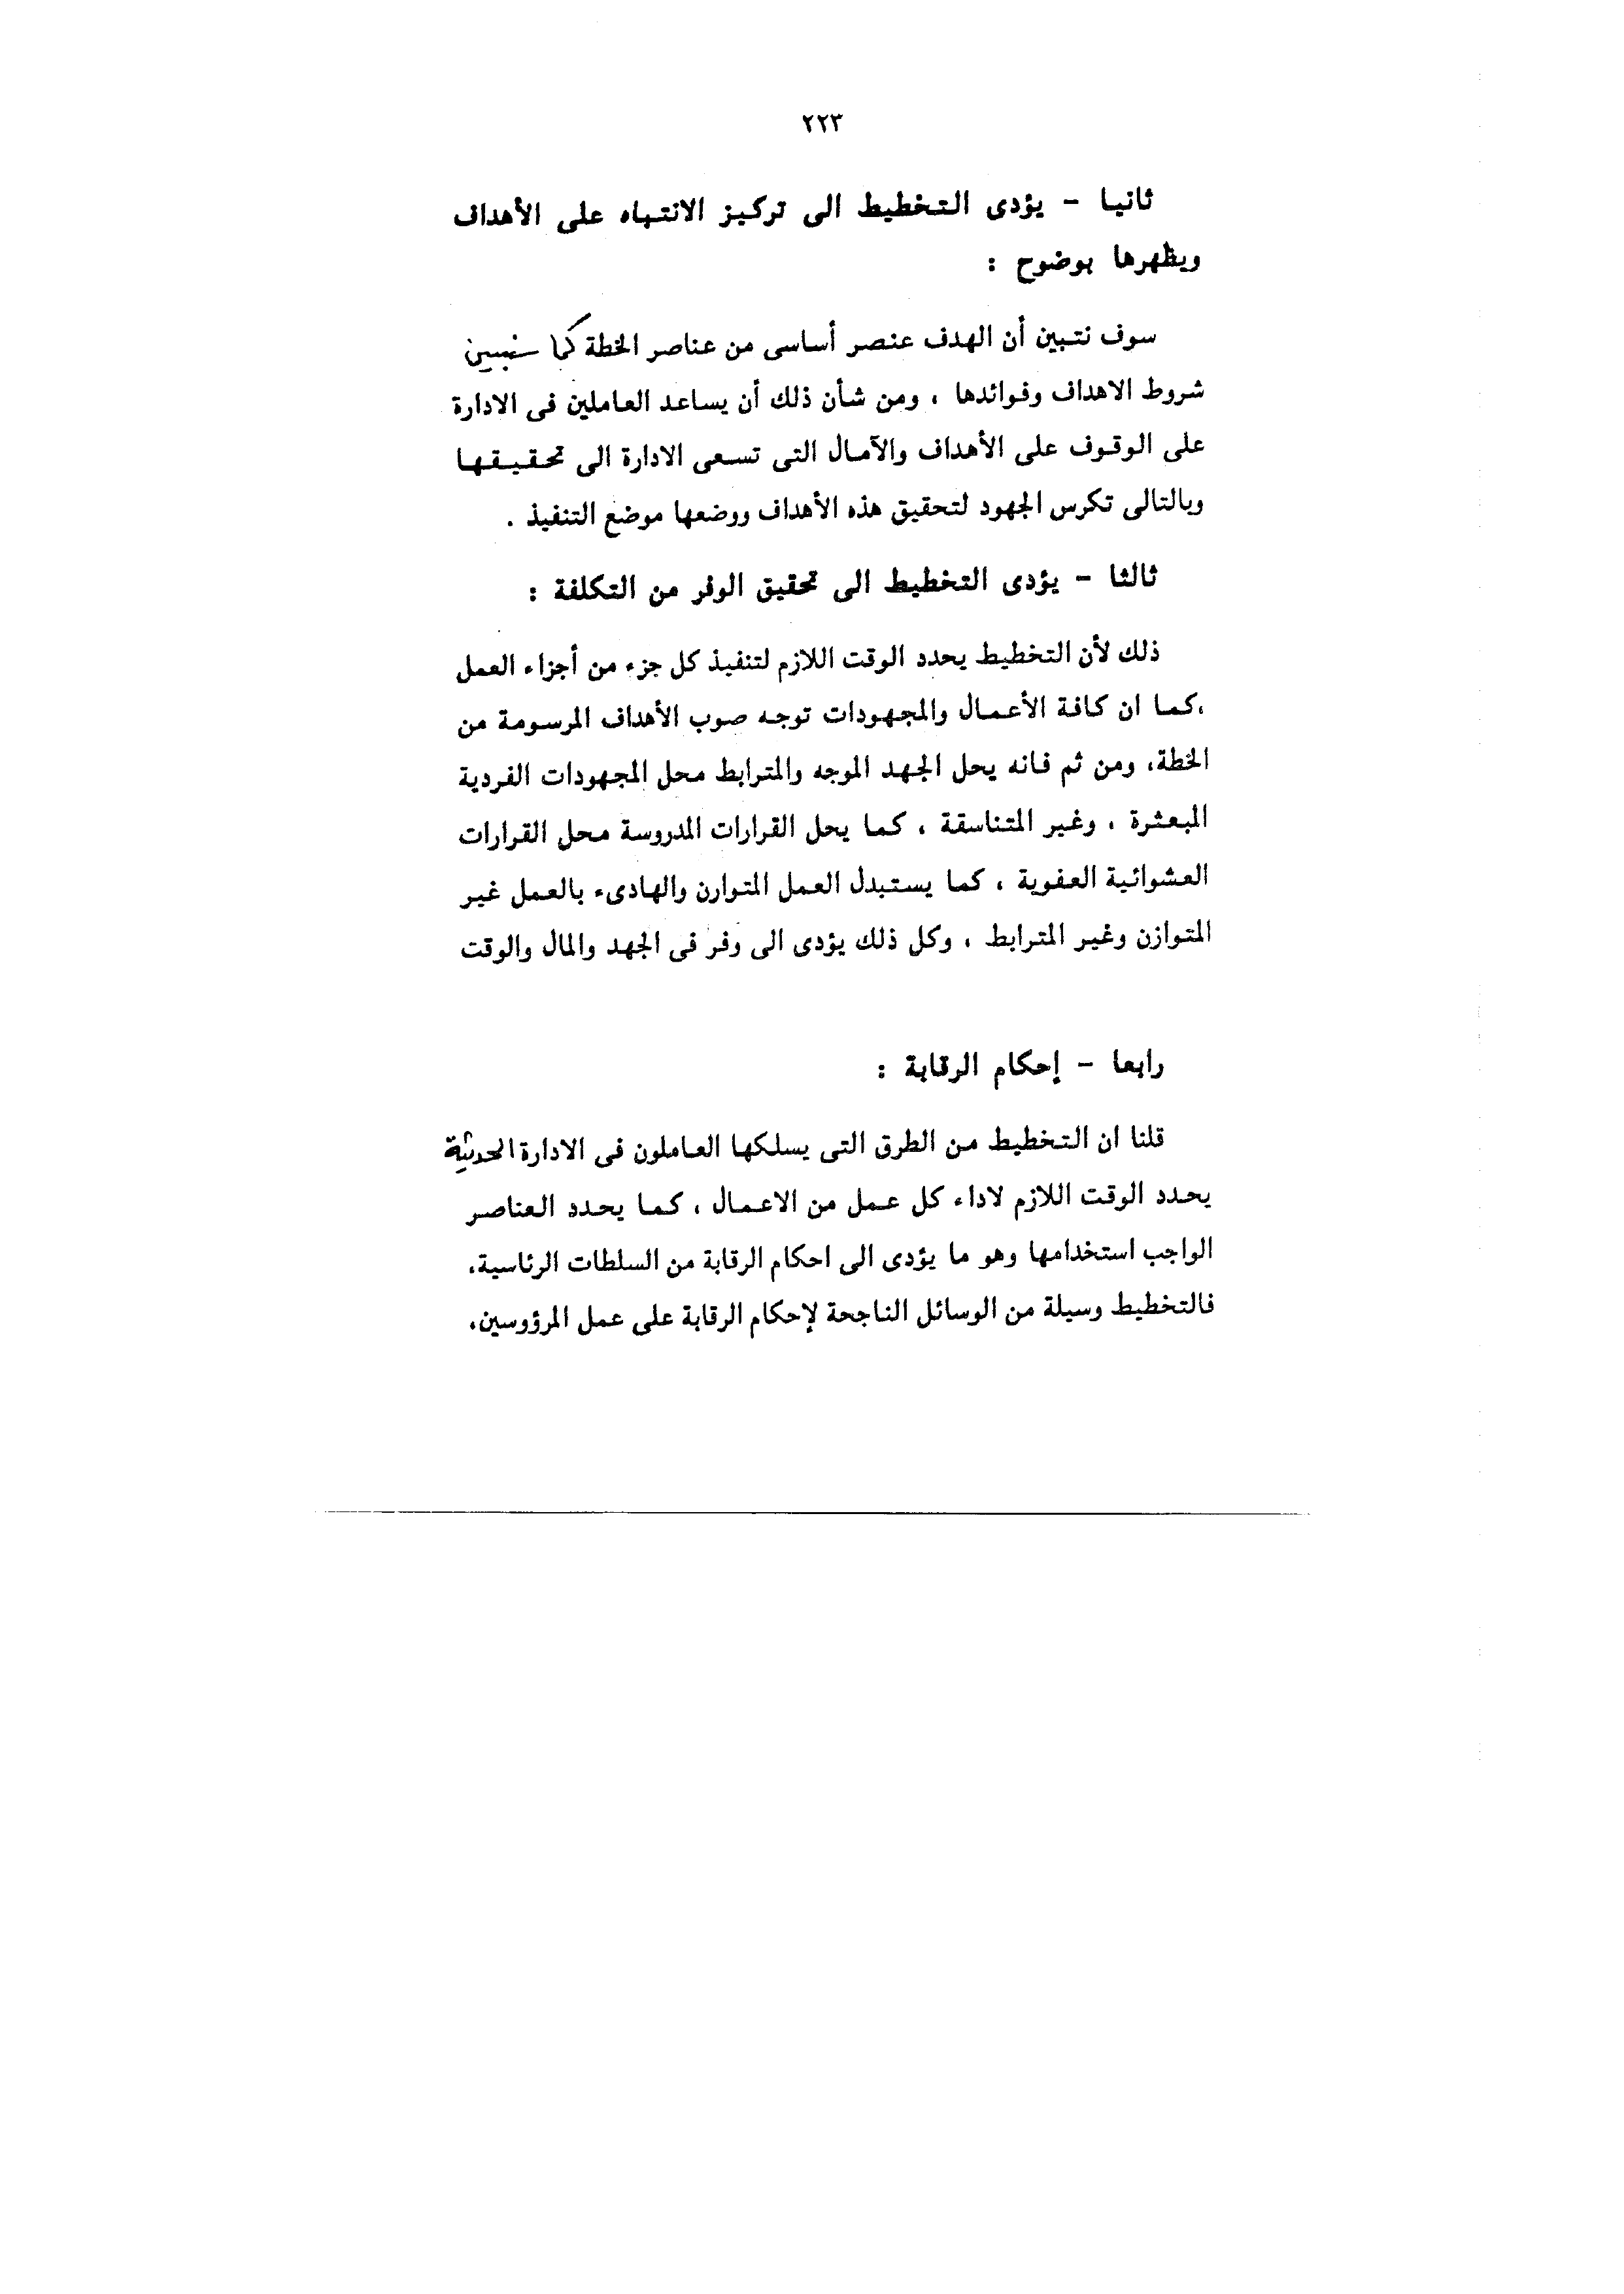 ٢٢٣
ثانيا - يؤدى التخطيط الى تركيز الانتباه على الأهداف
ويظهرها بوضوح :
سوف نتبين أن الهدف عنصر أساسى من عناصر الخطة كما سنبين
شروط الاهداف وفوائدها ، ومن شأن ذلك أن يساعد العاملين فى الادارة
على الوقوف على الأهداف والآمال التى تسعى الادارة الى تحقيقها
وبالتالى تكرس الجهود لتحقيق هذه الأهداف ووضعها موضع التنفيذ .
ثالثا - يؤدى التخطيط الى تحقيق الوفر من التكلفة :
ذلك لأن التخطيط يحدد الوقت اللازم لتنفيذ كل جزء من أجزاء العمل
،كما ان كافة الأعمال والمجهودات توجه صوب الأهداف المرسومة من
الخطة، ومن ثم فانه يحل الجهد الموجه والمترابط محل المجهودات الفردية
المبعثرة ، وغير المتناسقة ، كما يحل القرارات المدروسة محل القرارات
العشوائية العفوية ، كما يستبدل العمل المتوارن والهادىء بالعمل غير
المتوازن وغير المترابط ، وكل ذلك يؤدى الى وفر فى الجهد والمال والوقت
رابعا - إحكام الرقابة :
قلنا ان التخطيط من الطرق التى يسلكها العاملون فى الادارة الحديثة
يحدد الوقت اللازم لاداء كل عمل من الاعمال ، كما يحدد العناصر
الواجب استخدامها وهو ما يؤدى الى احكام الرقابة من السلطات الرئاسية،
فالتخطيط وسيلة من الوسائل الناجحة لإحكام الرقابة على عمل المرؤوسين،